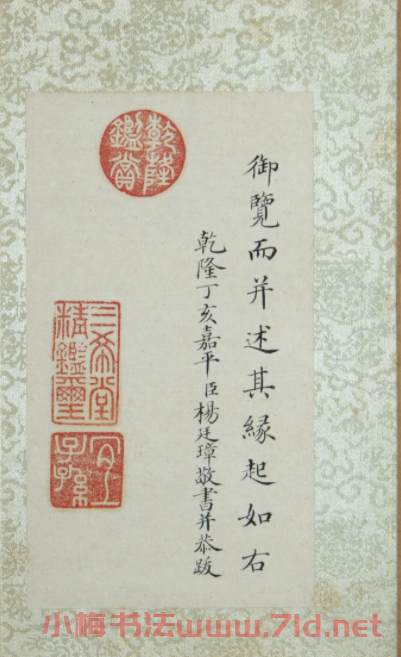 御覽而并述其緣起如右
乾隆丁亥嘉平臣楊廷璋敬書并恭跋
乾隆鑑賞
三希堂精鑑璽
宜子孫
小梅书法www.7ld.net